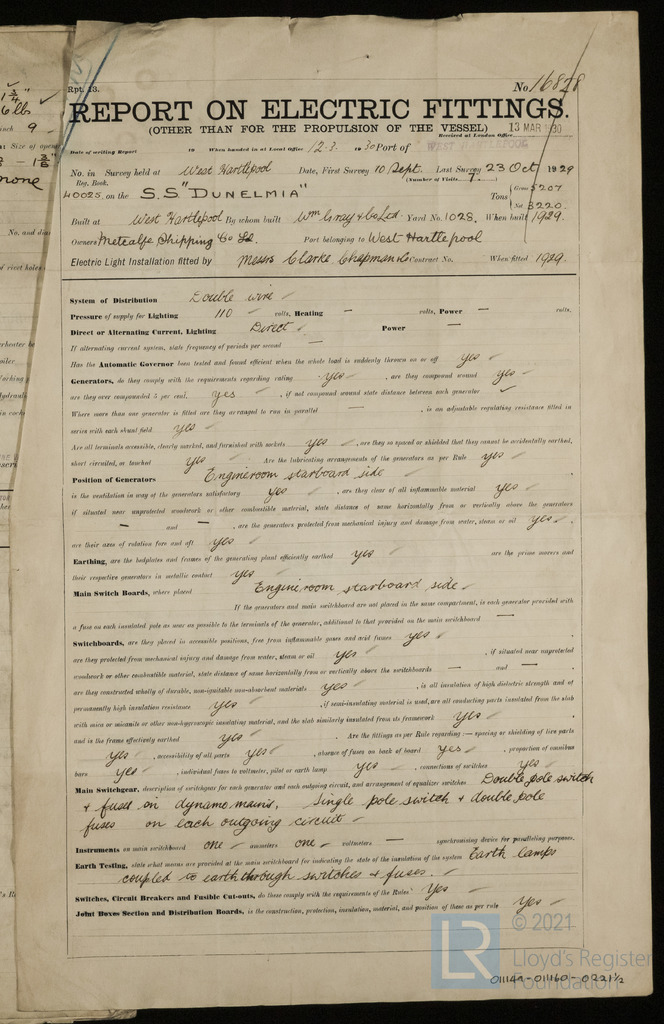 Rpt. 13.
No. 16828
REPORT ON ELECTRIC FITTINGS.
(OTHER THAN FOR THE PROPULSION OF THE VESSEL)
13 MAR 1930
Received at London Office
Date of writing Report 19 When handed in at Local Office 12.3. 1930 Port of WEST HARTLEPOOL
No. in Survey held at West Hartlepool Date, First Survey 10 Sept. Last Survey 23 Oct 1929
Reg. Book. (Number of Visits 7.
40025 on the S.S "DUNELMIA" Tons { Gross 5207
Net 3220
Built at West Hartlepool By whom built Wm Gray & Co Ltd Yard No. 1028. When built 1929.
Owners Metcalfe Shipping Co Ld. Port belonging to West Hartlepool
Electric Light Installation fitted by Messrs Clarke Chapman & Co Contract No. When fitted 1929.
System of Distribution Double wire ✓
Pressure of supply for Lighting 110 volts, Heating — volts, Power — volts.
Direct or Alternating Current, Lighting Direct ✓ Power —
If alternating current system, state frequency of periods per second —
Has the Automatic Governor been tested and found efficient when the whole load is suddenly thrown on or off yes ✓
Generators, do they comply with the requirements regarding rating yes ✓, are they compound wound yes ✓
are they over compounded 5 per cent. yes ✓, if not compound wound state distance between each generator ✓
Where more than one generator is fitted are they arranged to run in parallel —, is an adjustable regulating resistance fitted in
series with each shunt field yes ✓
Are all terminals accessible, clearly marked, and furnished with sockets yes ✓, are they so spaced or shielded that they cannot be accidentally earthed,
short circuited, or touched yes ✓ Are the lubricating arrangements of the generators as per Rule yes ✓
Position of Generators Engineroom starboard side ✓
is the ventilation in way of the generators satisfactory yes ✓, are they clear of all inflammable material yes ✓
if situated near unprotected woodwork or other combustible material, state distance of same horizontally from or vertically above the generators
— and —, are the generators protected from mechanical injury and damage from water, steam or oil yes ✓,
are their axes of rotation fore and aft yes ✓
Earthing, are the bedplates and frames of the generating plant efficiently earthed yes ✓ are the prime movers and
their respective generators in metallic contact yes ✓
Main Switch Boards, where placed Engineroom starboard side ✓
If the generators and main switchboard are not placed in the same compartment, is each generator provided with
a fuse on each insulated pole as near as possible to the terminals of the generator, additional to that provided on the main switchboard —
Switchboards, are they placed in accessible positions, free from inflammable gases and acid fumes yes ✓,
are they protected from mechanical injury and damage from water, steam or oil yes ✓, if situated near unprotected
woodwork or other combustible material, state distance of same horizontally from or vertically above the switchboards — and —,
are they constructed wholly of durable, non-ignitable non-absorbent materials yes ✓, is all insulation of high dielectric strength and of
permanently high insulation resistance yes ✓, if semi-insulating material is used, are all conducting parts insulated from the slab
with mica or micanite or other non-hygroscopic insulating material, and the slab similarly insulated from its framework yes ✓
and is the frame effectively earthed yes ✓ Are the fittings as per Rule regarding:— spacing or shielding of live parts
yes ✓, accessibility of all parts yes ✓, absence of fuses on back of board yes ✓, proportion of omnibus
bars yes ✓, individual fuses to voltmeter, pilot or earth lamp yes ✓, connections of switches yes ✓
Main Switchgear, description of switchgear for each generator and each outgoing circuit, and arrangement of equalizer switches Double pole switch
+ fuses on dynamo mains, Single pole switch + double pole
fuses on each outgoing circuit ✓
Instruments on main switchboard one ✓ ammeters one ✓ voltmeters — synchronising device for paralleling purposes.
Earth Testing, state what means are provided at the main switchboard for indicating the state of the insulation of the system Earth lamps
coupled to earth through switches & fuses. ✓
Switches, Circuit Breakers and Fusible Cut-outs, do these comply with the requirements of the Rules Yes ✓
Joint Boxes Section and Distribution Boards, is the construction, protection, insulation, material, and position of these as per rule Yes ✓
© 2021
LR Lloyd's Register
Foundation
011149-011160-0221½